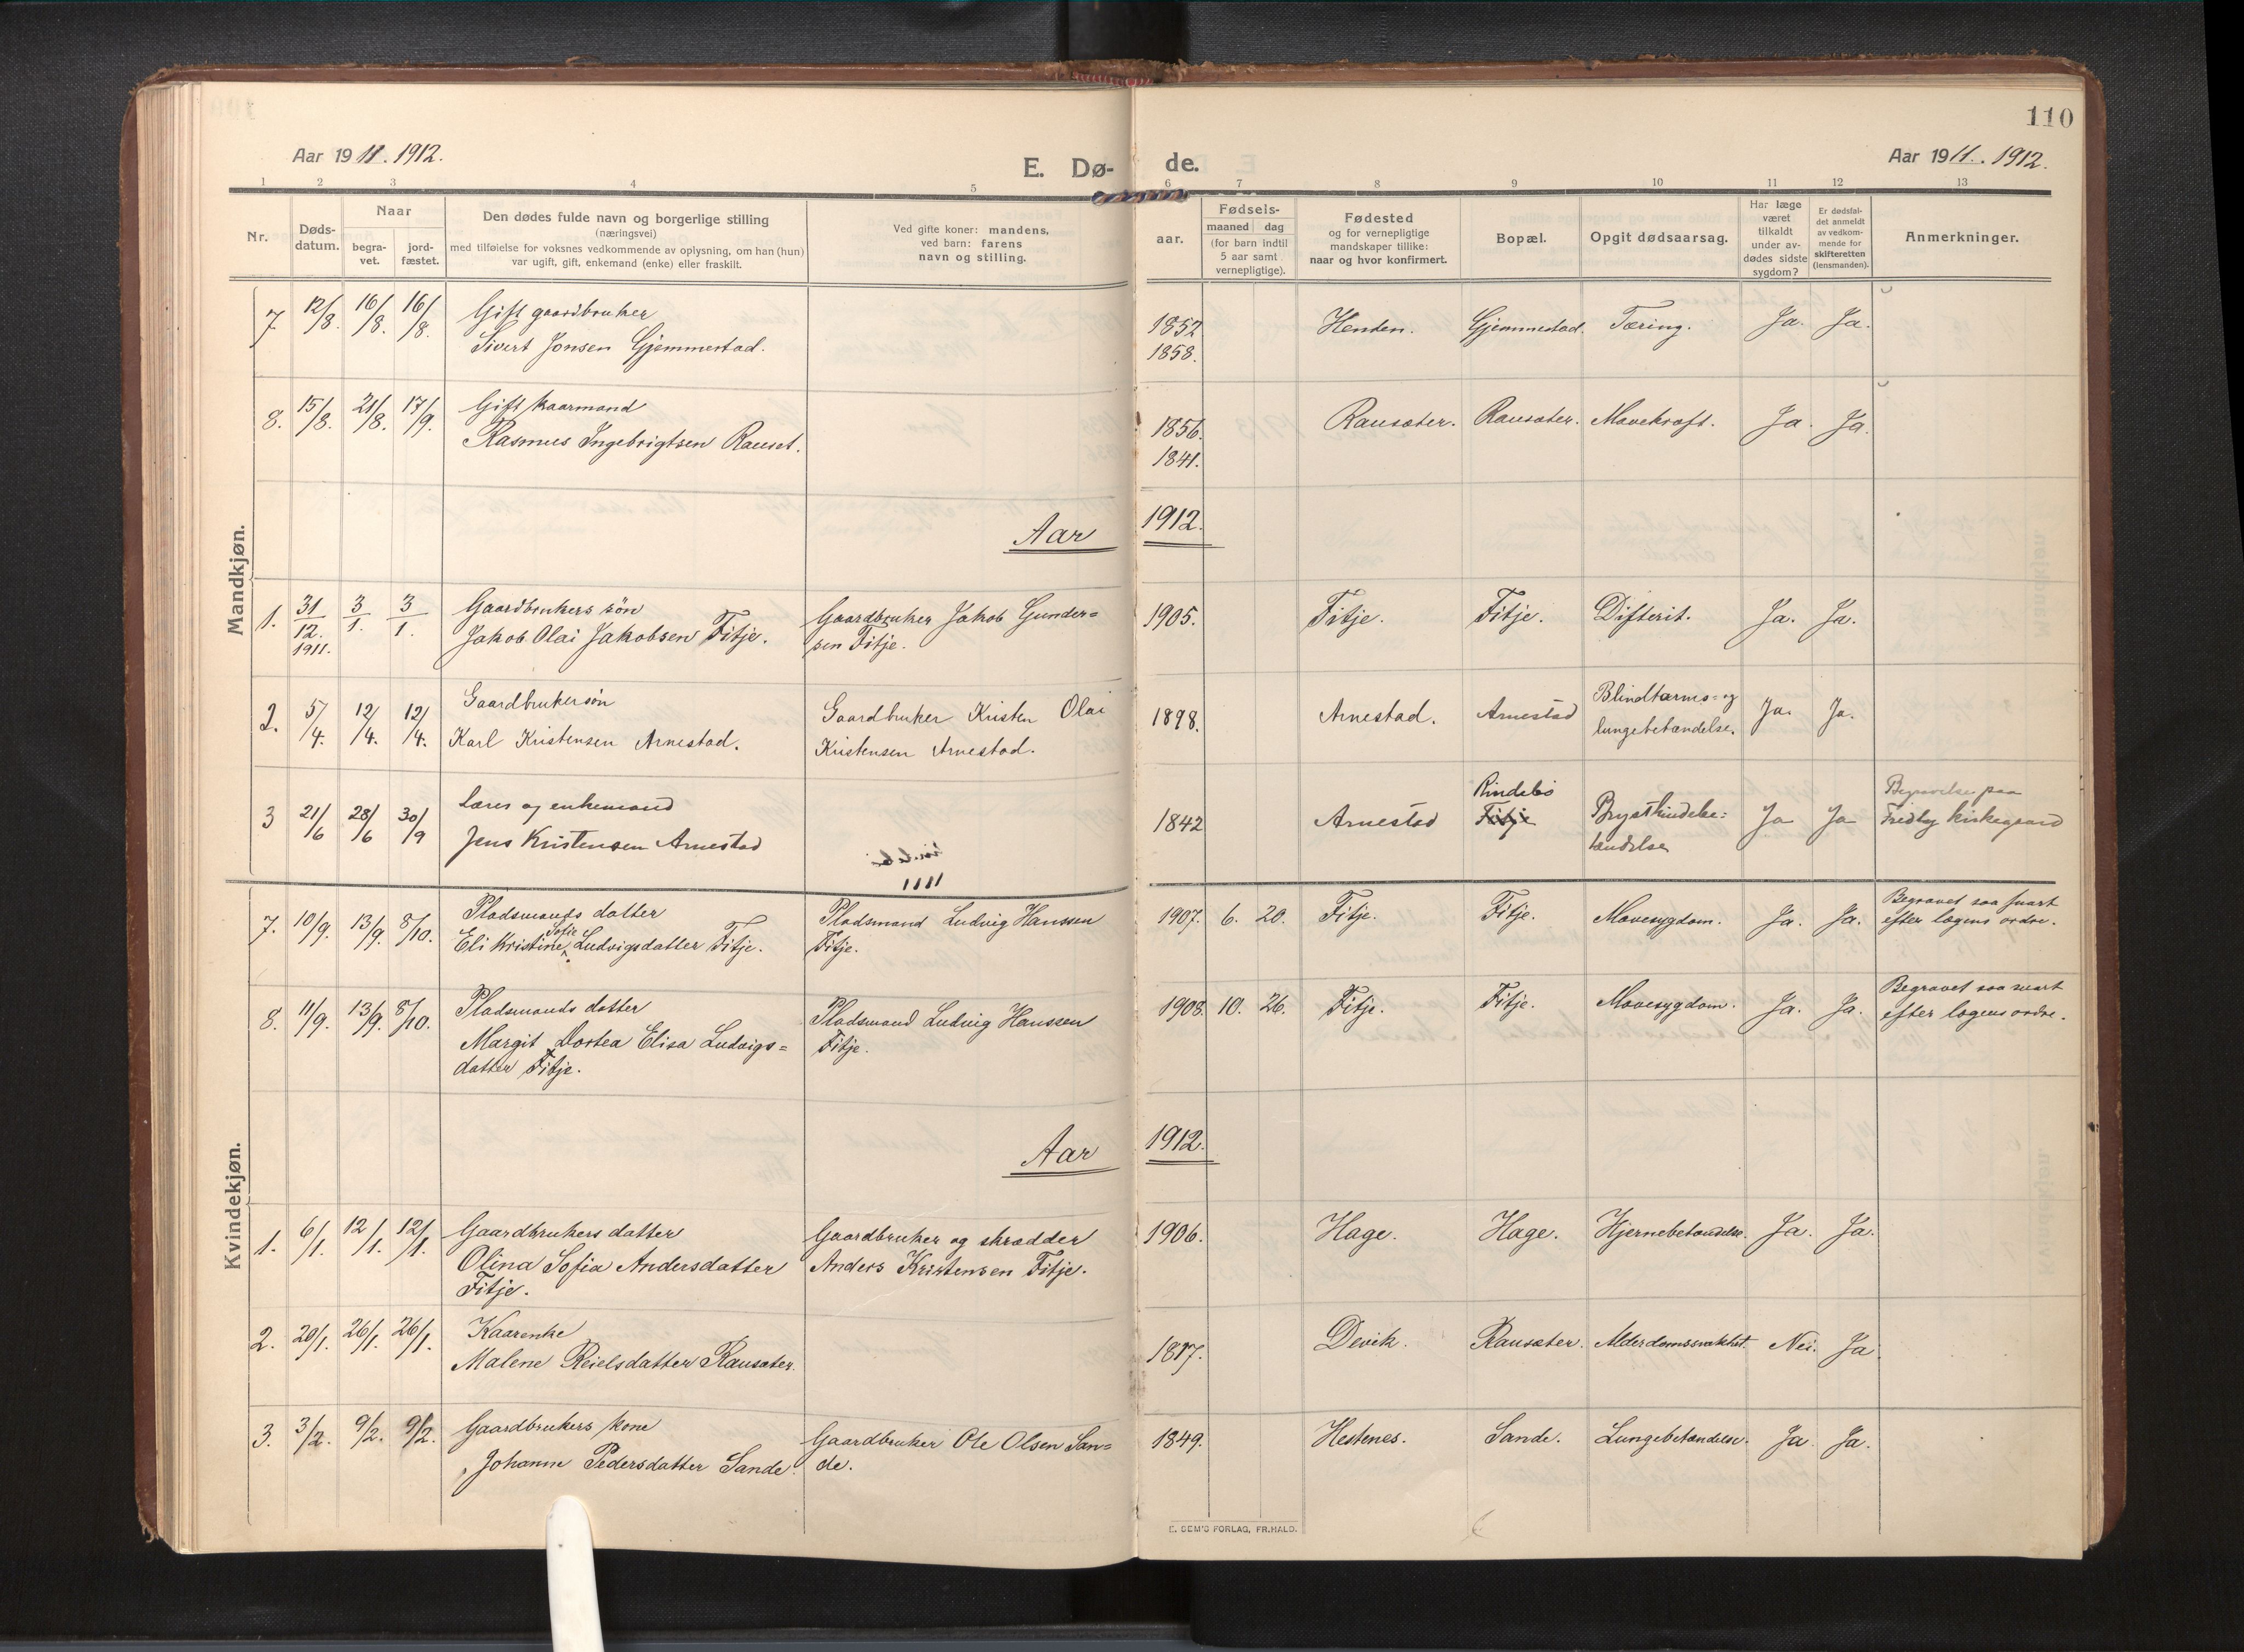 110
Aar 1911. 1912.
E. Dø-
de.
Aar 1911. 1912.
1 2 3 4 5 6 7 8 9 10 11 12 13
Nr.
Døds-
datum.
Naar
begra-
vet.
jord-
fæstet.
Den dødes fulde navn og borgerlige stilling
(næringsvei)
med tilføielse for voksnes vedkommende av oplysning, om han (hun)
var ugift, gift, enkemand (enke) eller fraskilt.
Ved gifte koner: mandens,
ved barn: farens
navn og stilling.
aar.
Fødsels-
maaned dag
(for barn indtil
5 aar samt
vernepligtige).
Fødested
og for vernepligtige
mandskaper tillike:
naar og hvor konfirmert.
Bopæl.
Opgit dødsaarsag.
Har læge
været
tilkaldt
under av-
dødes sidste
sygdom?
Er dødsfal-
det anmeldt
av vedkom-
mende for
skifteretten
(lensmanden).
Anmerkninger.
Mandkjøn.
7. 12/8. 16/8. 16/8. Gift gaardbruker
Sivert Jonsen Gjemmestad.
1852
1858.
Henden. Gjemmestad. Tæring. Ja. Ja.
8. 15/8. 21/8. 17/9. Gift kaarmand
Rasmus Ingebrigtsen Rauset.
1856.
1841.
Rausæter. Rausæter. Mavekræft. Ja. Ja.
Aar 1912.
1. 31/12. 1911. 3/1. 3/1. Gaardbrukers søn
Jakob Olai Jakobsen Fitje.
Gaardbruker Jakob Gunder=
sen Fitje.
1905. Fitje. Fitje. Difterit. Ja. Ja.
2. 5/4. 12/4. 12/4. Gaardbrukersøn
Karl Kristensen Arnestad.
Gaardbruker Kristen Olai
Kristensen Arnestad.
1898. Arnestad. Arnestad Blindtarms= og
lungebetændelse. Ja. Ja.
3 21/6 28/6 30/9 Lærer og enkemand
Jens Kristensen Arnestad
1842 Arnestad Rindebø
Fitje
Brysthindebe=
tændelse Ja Ja
Begravelse paa
kirkegaard
Kvindekjøn.
7. 10/9. 13/9. 8/10. Pladsmands datter
Sofie
Eli Kristine Ludvigsdatter Fitje.
Pladsmand Ludvig Hanssen
Fitje.
1907. 6. 20. Fitje. Fitje. Mavesygdom. Ja. Ja.
Begravet saa snart
efter lægens ordre.
8. 11/9. 13/9. 8/10. Pladsmands datter
Margit Dortea Elisa Ludvigs=
datter Fitje.
Pladsmand Ludvig Hanssen
Fitje.
1908. 10. 26. Fitje. Fitje. Mavesygdom. Ja. Ja.
Begravet saa snart
efter lægens ordre.
Aar 1912.
1. 6/1. 12/1. 12/1. Gaardbrukers datter
Olina Sofia Andersdatter
Fitje.
Gaardbruker og skrædder
Anders Kristensen Fitje.
1906. Hage. Hage. Hjernebetændelse. Ja. Ja.
2. 20/1. 26/1. 26/1. Kaarenke
Malene Reielsdatter Rausæter.
1817. Devik. Rausæter. Alderdomssvakhet. Nei. Ja.
3. 3/2. 9/2. 9/2. Gaardbrukers kone
Johanne Pedersdatter Sande.
Gaardbruker Ole Olsen San=
de.
1849. Hestenes. Sande. Lungebetændelse. Ja. Ja.
E. SEM'S FORLAG, FR.HALD.